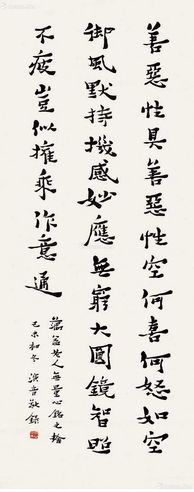 善惡性具善惡性空何喜何怒如空
御風默持機感妙應無窮大圓鏡智照
不疲豈似擁乘作意通
蕅益大人無量心銘之捨
己未初冬演音敬錄